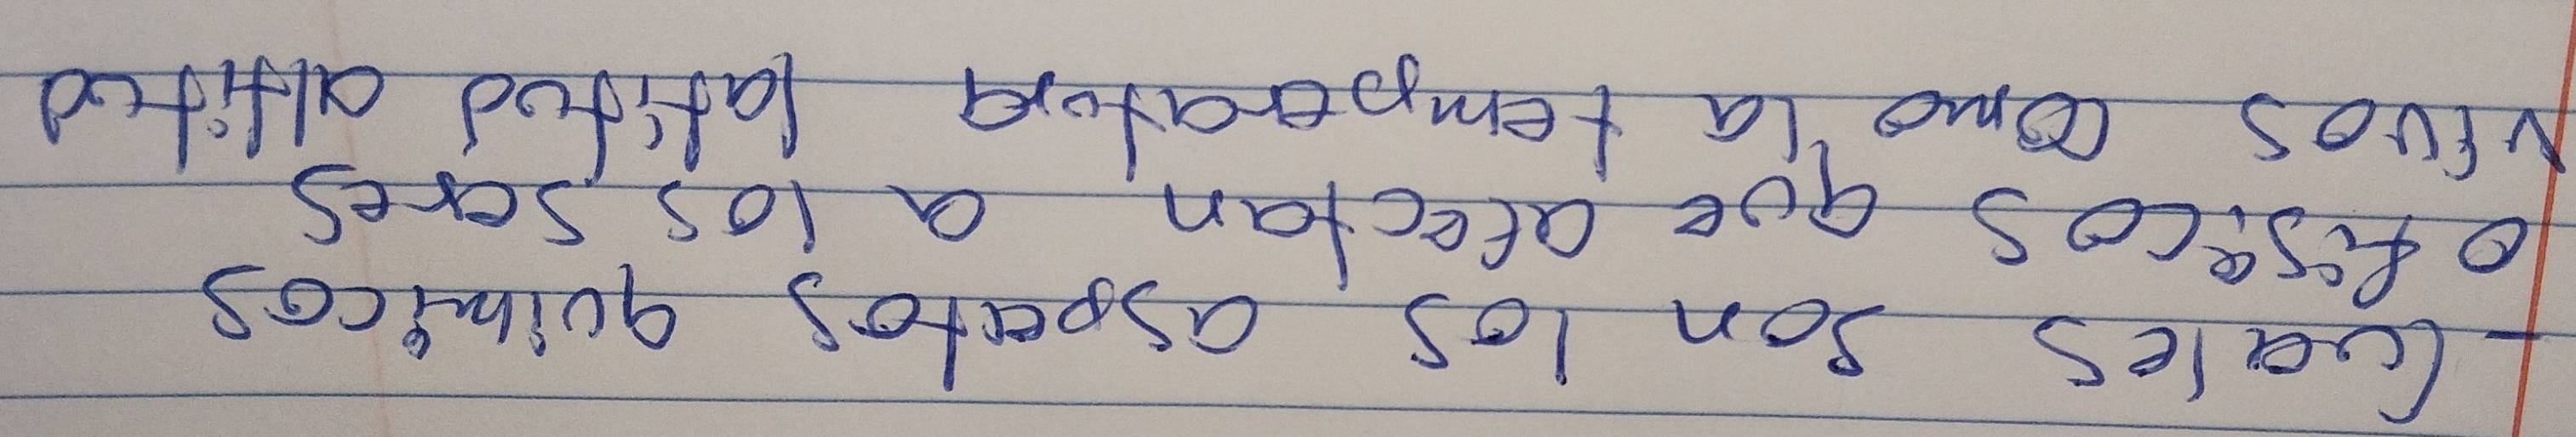 - Cuales son los aspectos quimicos
o fisicos que afectan a los seres
vivos como la temperatura latitud altitud